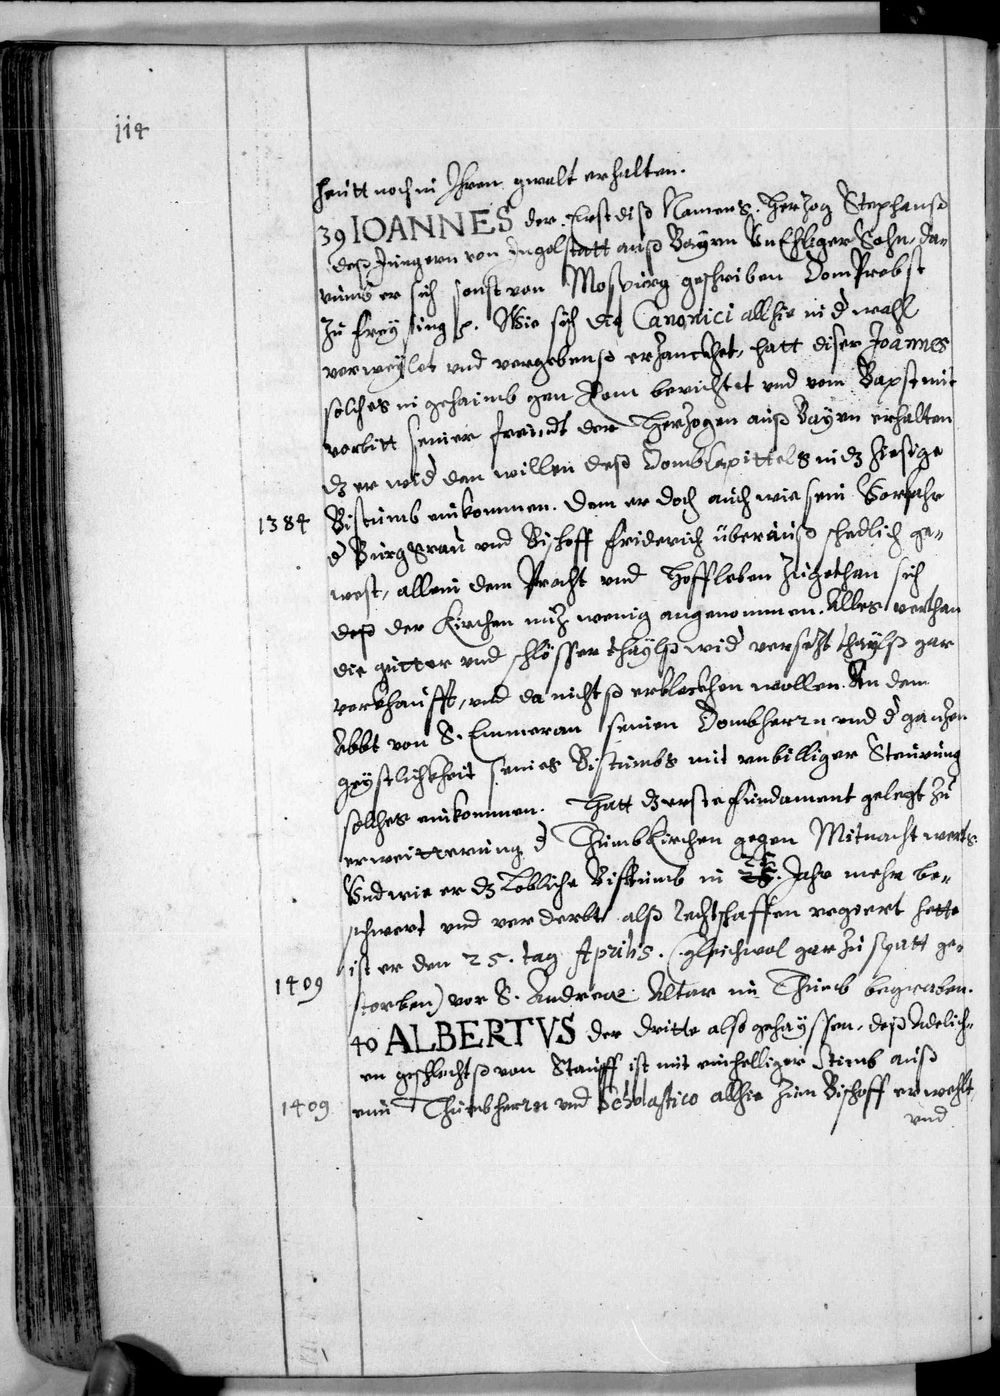 114
heütt noch in Ihren gwalt erhalten.
39 IOANNES der Erst diß Namens. Herzog Stephanß
deß Jüngern von Ingolstatt auß Bayrn VnEhliger Sohn, da-
rumb er sich sonst von Mospürg geschriben DomProbst
zu Freysing p. Wie sich die Canonici allhie in d wahl
verweylet vnd vergebenß erzanckhet, hatt diser Joannes
solches in gehaimb gen Rom berichtet vnd vom Bapst mit
vorbitt seiner freündt der Herzogen auß Bayrn erhalten
dz er wid den willen deß DombCapittels in dz hiesige
1384 Bistumb einkommen. Dem er doch auch wie sein Vorfahr
d Burggrau vnd Bischoff Friderich überauß schedlich ge-
west, allein dem Pracht vnd Hoffleben zugethan sich
deß der Kirchen nuz wenig angenommen. Alles verthan
die gütter vnd schlösser thaylß wid versezt thaylß gar
verkhaufft, vnd da nichtß erkleckhen wollen. An dem
Abbt von S. Emmeran seinen Dombherrn vnd d ganzen
geystlichkheit seines Bistumbs mit vnbilliger Steurung
solches einkommen. Hatt dz erste fundament gelegt zu
erweitterung d Thumbkirchen gegen Mitnacht werts.
Vnd wie er dz Lobliche Bisstumb in 25. Jahr mehr be-
schwert vnd verderbt alß rechtschaffen regiert hette
ist er den 25. tag Aprilis. (gleichwol gar zu spatt ge-
1409 storben) vor S. Andreae Altar im Thumb begraben.
40 ALBERTVS der dritte also gehayssen, deß Adelich-
en geschlechtß von Stauff ist mit einhelliger Stimb auß
1409 eim Thumbherrn vnd Scholastico allhie zum Bischoff erwehlt
vnd